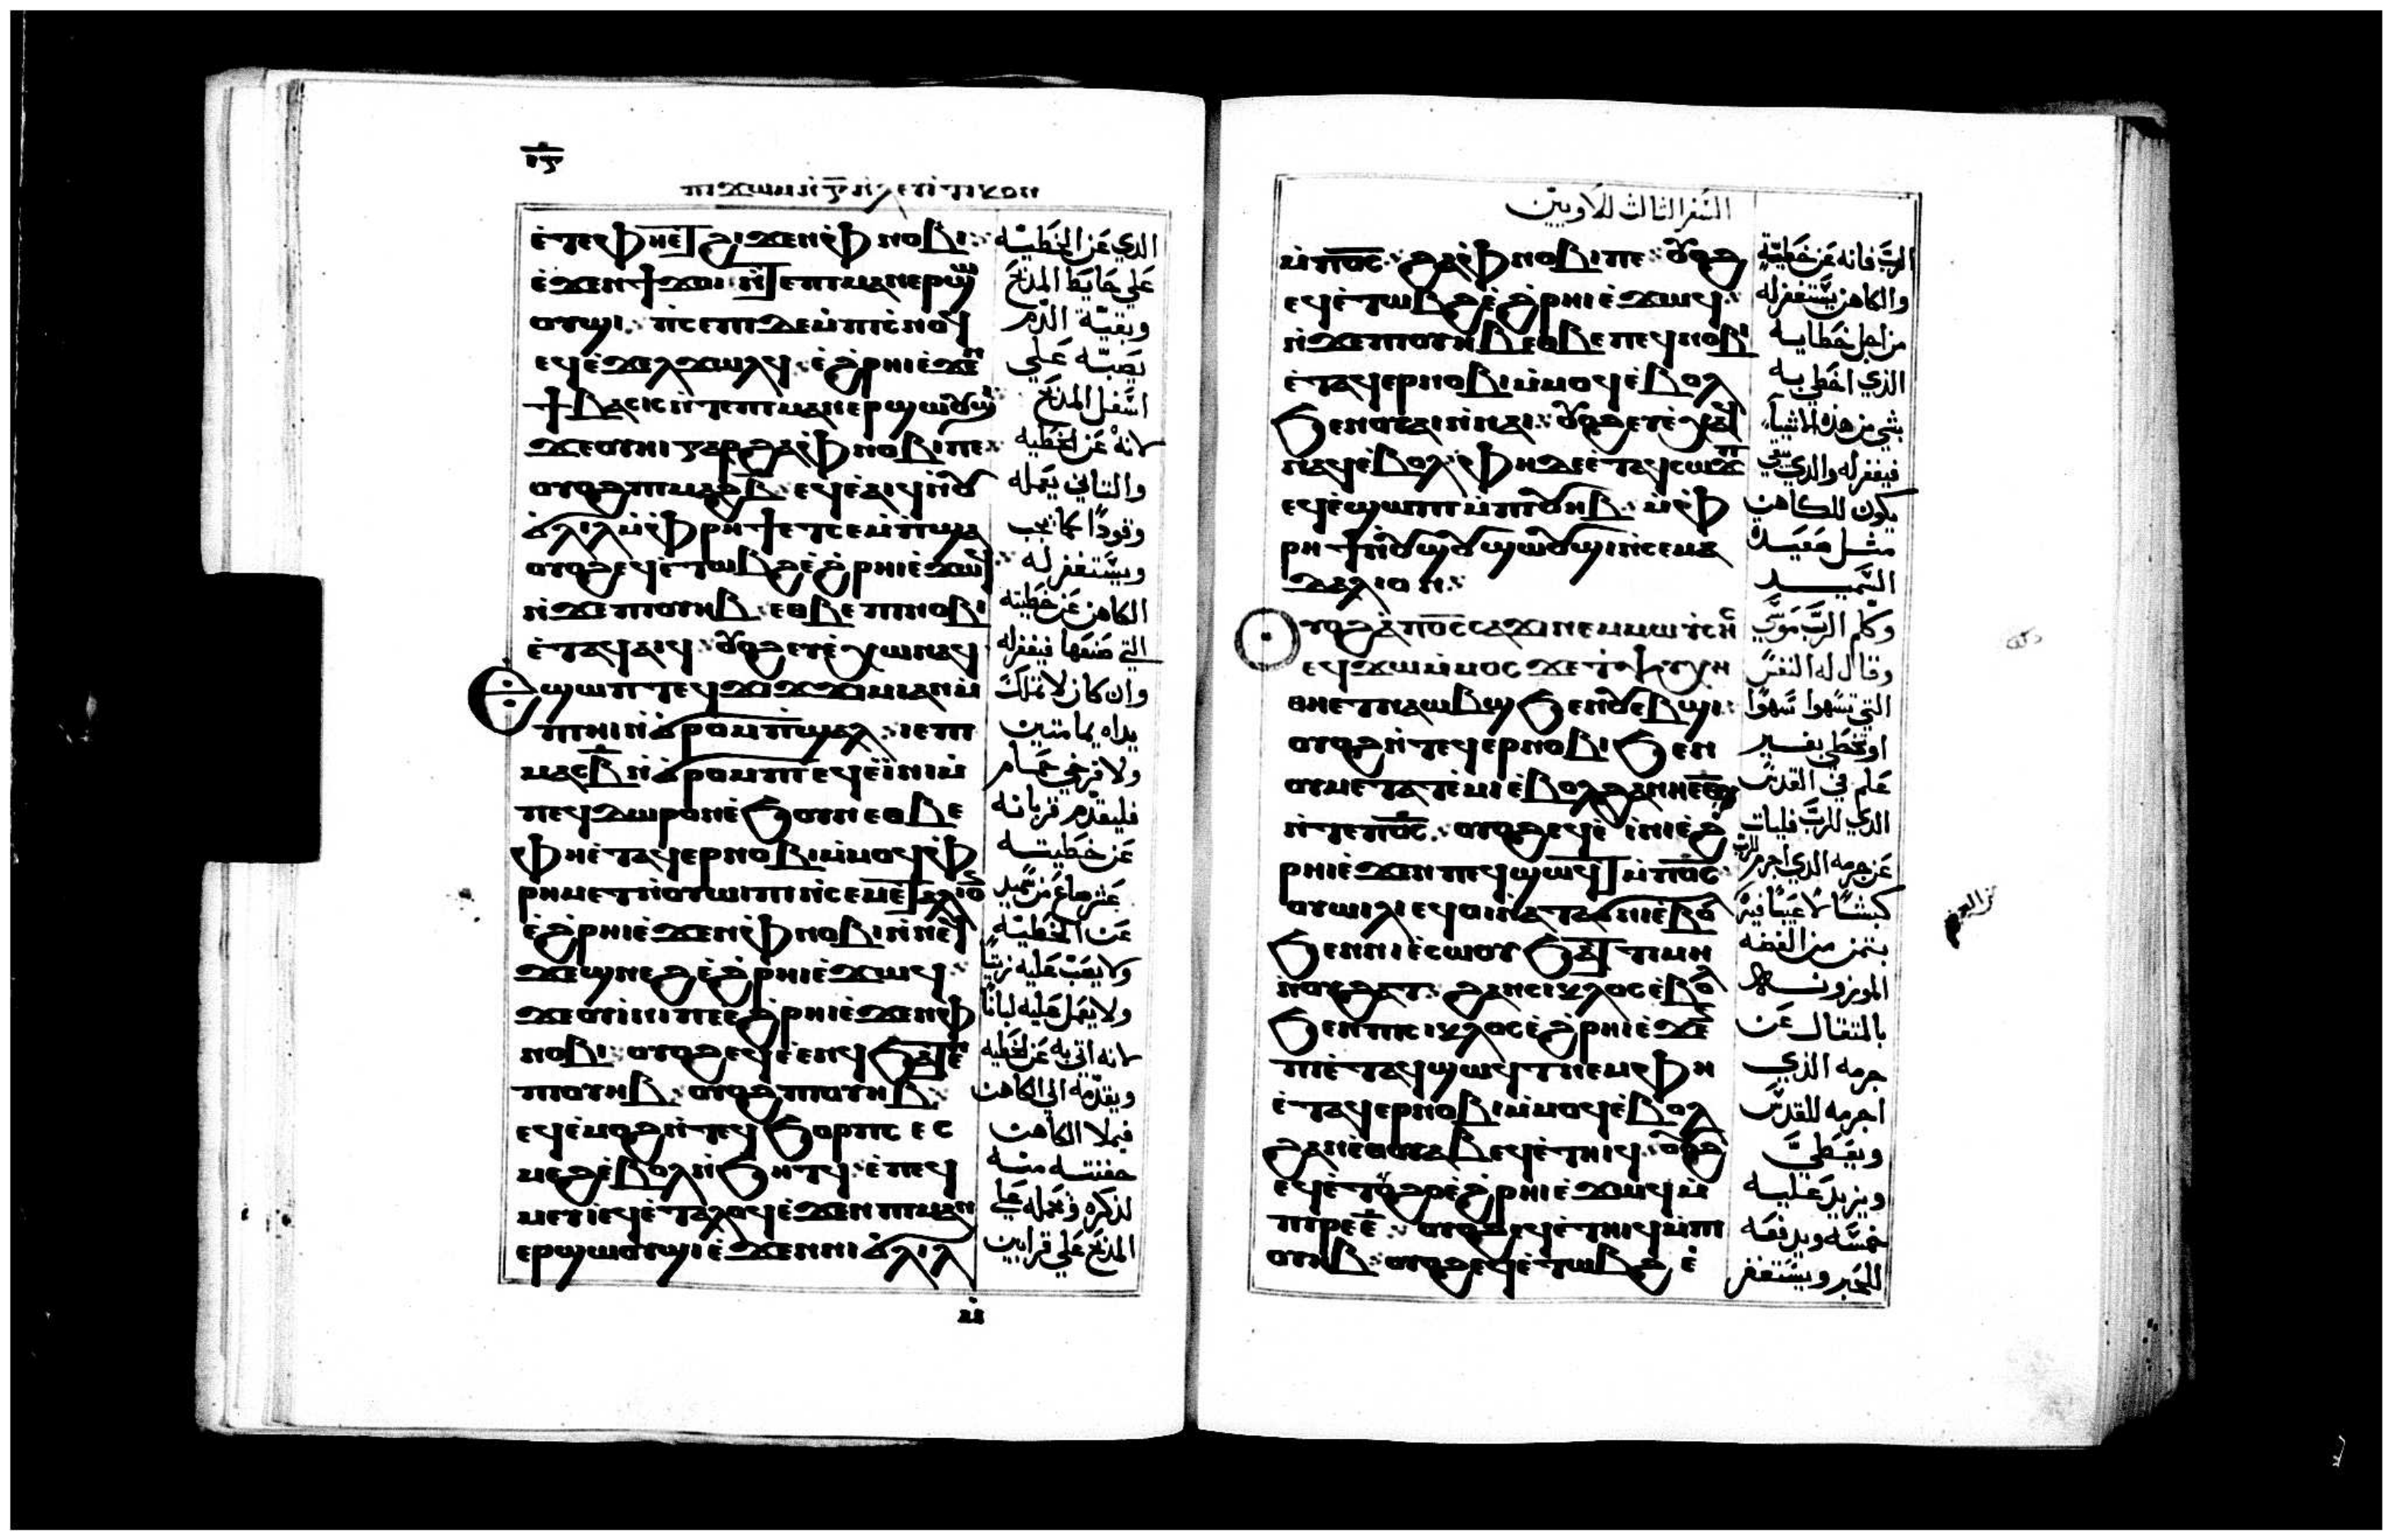 ⲓⲋ
ⲡⲓϫⲱⲙⲙ̇ⲅ̅ⲛ̇ⲗⲉⲩⲓⲧⲓⲕⲟⲛ
ϩⲓϫⲉⲛⲫⲛⲟⲃⲓ
ⲉ̇ϫⲉⲛϯϫⲟⲓ ⲛ̇ⲧⲉⲡⲓⲙⲁⲛⲉⲣϣⲱ
ⲟⲩϣⲓ ⲡ̇ⲥⲉⲡⲓ ⲇⲉ ⲙ̇ⲡⲓⲥ̇ⲛⲟϥ
ⲉϥⲉ̇ϫⲉⲗϫⲱⲗϥ ⲉ̇ϩ̇ⲣⲏⲓ ⲉ̇ϫⲉⲛ
ϯⲃⲁⲥⲓⲥ ⲛ̇ⲧⲉⲡⲓⲙⲁⲛⲉⲣϣⲱⲟⲩϣⲓ
ϫⲉ ⲟⲩⲏⲓ ⲅⲁⲣ ϩⲁⲫⲛⲟⲃⲓⲡⲉ
ⲟⲩⲟϩ ⲡⲓⲙⲁϩⲃ̅ ⲉϥⲉ̇ⲁⲓϥ ⲛ̇ⲟⲩ
ϭ̇ⲗⲓⲗ ⲙ̇ⲫⲣⲏϯ ⲉⲧⲥⲉⲙ̇ⲡ̇ϣⲁ
ⲟⲩⲟϩ ⲉϥⲉ̇ⲧⲱⲃϩ ⲉ̇ϩ̇ⲣⲏⲓ ⲉ̇ϫⲱϥ
ⲛ̇ϫⲉ ⲡⲓⲟⲩⲏⲃ ⲉⲑⲃⲉ ⲡⲓⲛⲟⲃⲓ
ⲉ̇ⲧⲁϥⲁⲓϥ ⲟⲩⲟϩ ⲉⲩⲉ̇ⲭⲱ ⲛⲁϥ
ⲉϣⲱⲡ ⲧⲉϥϫⲓϫ ϫⲓⲙⲓ ⲁⲛ ⲙ̇
ⲡⲓⲛⲓ ⲛ̇ϭ̇ⲣⲟⲙⲡϣⲁⲗ ⲓⲉ ⲡⲓ
ⲙⲁⲥⲃ̅ ⲛ̇ϭ̇ⲣⲟⲙⲡⲓ ⲉϥⲉ̇ⲓ̇ⲛⲓ ⲙ̇
ⲡⲉϥⲇⲱⲣⲟⲛ ⲉ̇ϧⲟⲩⲛ ⲉⲑⲃⲉ
ⲫⲏⲉ̇ⲧⲁϥⲉⲣⲛⲟⲃⲓ ⲙ̇ⲙⲟϥ ⲫ
ⲣⲏⲙⲉⲧ ⲛ̇ⲟⲩⲱⲓⲡⲓ ⲛ̇ⲥⲉⲙⲉⲇⲁⲗⲓⲟⲛ
ⲉ̇ϩ̇ⲣⲏⲓ ⲉ̇ϫⲉⲛ ⲫⲛⲟⲃⲓ ⲛ̇ⲛⲉϥ
ϫⲉϣ ⲛⲉϩ ⲉ̇ϩ̇ⲣⲏⲓ ⲉ̇ϫⲱϥ
ϫⲉ ⲟⲩⲓ̇ⲛⲓⲡⲉ ⲉ̇ϩ̇ⲣⲏⲓ ⲉ̇ϫⲉⲛ ⲫ
ⲛⲟⲃⲓ ⲟⲩⲟϩ ⲉϥⲉ̇ⲉⲛϥ ϧⲁⲧⲉⲛ
ⲡⲓⲟⲩⲏⲃ ⲟⲩⲟϩ ⲡⲓⲟⲩⲏⲃ
ⲉϥⲉ̇ⲙⲟϩ ⲛ̇ⲧⲉϥϭⲟⲣⲡⲥ ⲉⲥ
ⲙⲉϩ ⲉ̇ⲃⲟⲗ ⲛ̇ϧⲏⲧϥ ⲉ̇ⲡⲉϥ
ⲙⲉⲩⲓ ⲉϥⲉ̇ⲧⲁⲗⲟϥ ⲉ̇ϫⲉⲛ ⲡⲓⲙⲁⲛ
ⲉⲣϣⲱⲟⲩϣⲓ ⲉ̇ϫⲉⲛ ⲛⲓϭ̇ⲗⲓⲗ
ⲙ̇
الذي عن الخطيّه
علي حايط المذبح
وبقيّة الدّم
يصبّه علي
اسفل المذبح
لانه عن الخطيه
والثاني يعمله
وقودًا كما يجب
ويستغفر له
الكاهن عن خطيته
التي صنعها فيغفر له
وان كان لا تملك
يداه يمامتين
ولا فرخي حمام
فليقدّم قربانه
عن خطيته
عشر صاع من سميد
عن الخطيّه
ولا يصب عليه زيتًا
ولا يجعل عليه لبانًا
لانه اتي به عن الخطيه
ويقدّمه الي الكاهن
فيملا الكاهن
حفنته منه
لذكره ويجعله علي
المذبح علي قرابين
السفر الثالث للاويين
ⲙ̇ⲡⲟ̅ⲥ̅ ϩⲁⲫⲛⲟⲃⲓⲡⲉ ⲟⲩⲟϩ
ⲉϥⲉ̇ⲧⲱⲃϩ ⲉ̇ϩ̇ⲣⲏⲓ ⲉ̇ϫⲱϥ
ⲛ̇ϫⲉ ⲡⲓⲟⲩⲏⲃ ⲉⲑⲃⲉ ⲡⲉϥⲛⲟⲃⲓ
ⲉ̇ⲧⲁϥⲉⲣⲛⲟⲃⲓ ⲙ̇ⲙⲟϥ ⲉ̇ⲃⲟⲗ
ϧⲉⲛ ⲟⲩⲁⲓ ⲛ̇ⲛⲁⲓ ⲟⲩⲟϩ ⲉⲩⲉ̇ⲭⲱ
ⲛⲁϥ ⲉ̇ⲃⲟⲗ ⲫⲏ ⲇⲉ ⲉ̇ⲧⲁϥⲥⲱϫⲡ
ⲉϥⲉ̇ϣⲱⲡⲓ ⲙ̇ⲡⲓⲟⲩⲏⲃ ⲙ̇ⲫ
ⲣⲏϯ ⲛ̇ⲟⲩϣⲟⲩϣⲱⲟⲩϣⲓ ⲛ̇ⲥⲉⲙⲁ
ⲇⲁⲗⲓⲟⲛ
ⲟⲩⲟϩ ⲁ̇ⲡⲟ̅ⲥ̅ ⲥⲁϫⲓ ⲛⲉⲙ ⲙⲱⲩⲥⲏⲥ
ⲉϥϫⲱ ⲙ̇ⲙⲟⲥ ϫⲉ ϯⲯⲩⲭⲏ
ⲑⲏⲉⲧⲛⲁⲱⲃϣ ϧⲉⲛ ⲟⲩⲉⲃϣⲓ
ⲟⲩⲟϩ ⲛ̇ⲧⲉϥⲉⲣⲛⲟⲃⲓ ϧⲉⲛ
ⲟⲩⲙⲉⲧⲁⲧⲉ̇ⲙⲓ ⲉ̇ⲃⲟⲗϩⲁ ⲛⲏⲉⲑⲩ
ⲛ̇ⲧⲉⲡⲟ̅ⲥ̅ ⲟⲩⲟϩ ⲉϥⲉ̇ⲓ̇ⲛⲓ ⲉ̇ϩ̇
ⲣⲏⲓ ⲉ̇ϫⲉⲛ ⲡⲉϥϣⲱϥⲧ ⲙ̇ⲡⲟ̅ⲥ̅
ⲟⲩⲱⲓⲗⲓ ⲉϥⲟⲓ ⲛ̇ⲁⲧⲁϭⲛⲓ ⲉ̇ⲃⲟⲗ
ϧⲉⲛ ⲛⲓⲉ̇ⲥⲱⲟⲩ ϧⲁ ⲧⲓⲙⲏ
ⲛ̇ⲟⲩϩⲁⲧ ϩⲁⲛⲥⲓⲕⲗⲟⲥ ⲉ̇ⲃⲟⲗ
ϧⲉⲛ ⲡⲓⲥⲓⲕⲗⲟⲥ ⲉ̇ϩ̇ⲣⲏⲓ ⲉ̇ϫⲉⲛ
ⲡⲓⲉ̇ⲧⲁϥϣⲱϥⲧ ⲛⲉⲙ ⲫⲏ
ⲉ̇ⲧⲁϥⲉⲣⲛⲟⲃⲓ ⲙ̇ⲙⲟϥ ⲉ̇ⲃⲟⲗ
ϩⲁ ⲛⲉⲑⲟⲩⲁⲃ ⲉϥⲉ̇ⲧⲏⲓϥ ⲟⲩⲟϩ
ⲉϥⲉ̇ⲧⲟⲩϩⲟ ⲉ̇ϩ̇ⲣⲏⲓ ⲉ̇ϫⲱϥ ⲙ̇
ⲡⲓⲣⲉⲉ̅ ⲟⲩⲟϩ ⲉϥⲉ̇ⲧⲏⲓϥ ⲙ̇ⲡⲓ
ⲟⲩⲏⲃ ⲟⲩⲟϩ ⲉϥⲉ̇ⲧⲱⲃϩ ⲉ̇
الربّ فانه عن خطيّة
والكاهن يستغفر له
من اجل خطايه
الذي اخطي به
بشي من هذه الاشيا
فيغفر له والذي بقي
يكون للكاهن
مثل صعيدة
السّميد
وكلم الربّ موسي
وقال له النفس
التي تسهوا سهوًا
او تخطي بغير
علم في القدس
الذي للرب فليات
عن جرمه الذي اجرم للرب
كبشًا لا عيبًا فيه
بثمن من الفضه
بالمثقال عن
جرمه الذي
اجرمه للقدس
ويعطيَ
ويزيد عليه
خمسه ويدفعه
للحبر ويستغفر